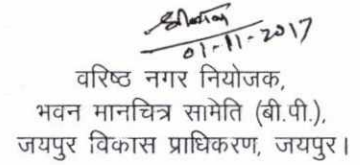 01-11-2017
वरिष्ठ नगर नियोजक,
भवन मानचित्र सामेति (बी.पी.),
जयपुर विकास प्राधिकरण, जयपुर।